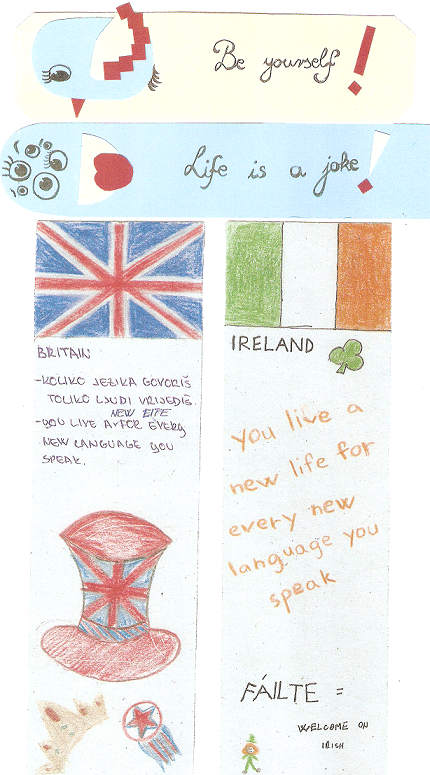 Be yourself!
Life is a joke!
BRITAIN
-KOLIKO JEZIKA GOVORIŠ
TOLIKO LJUDI VRIJEDIŠ.
NEW LIFE
-YOU LIVE A FOR EVERY
NEW LANGUAGE YOU
SPEAK.
IRELAND
you live a
new life for
every new
language you
speak
FÁILTE =
WELCOME ON
IRISH